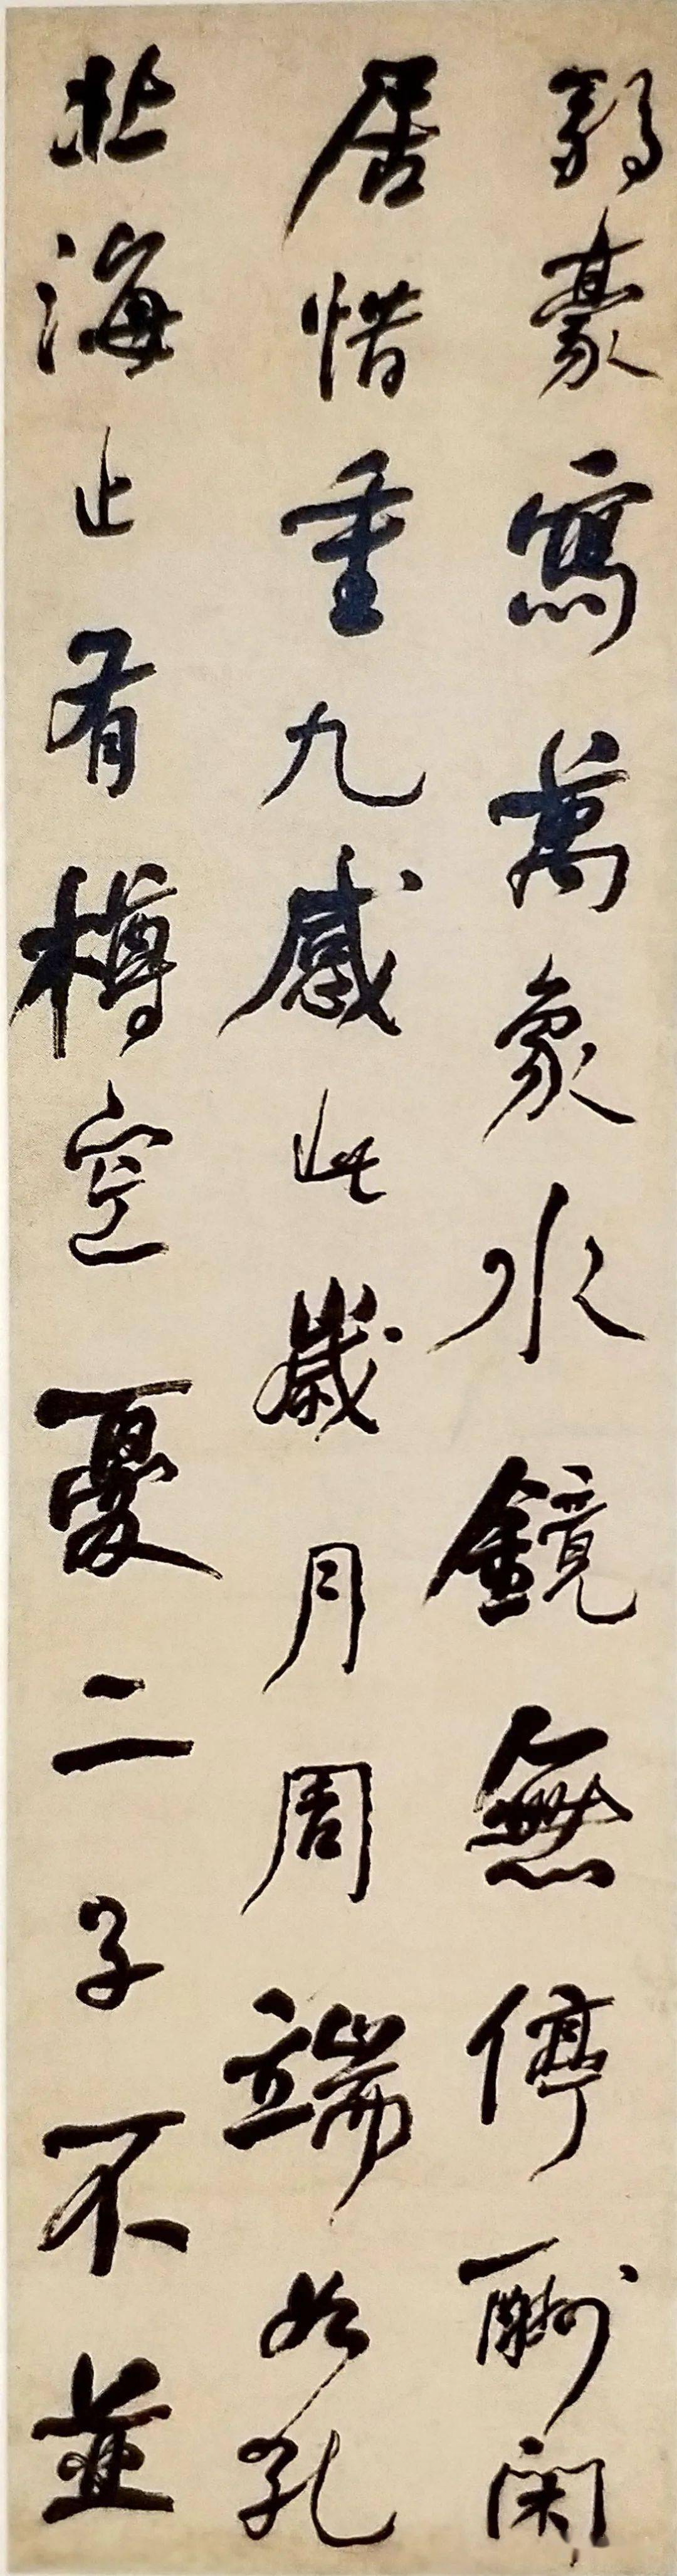 豪寫萬象水鏡無停酬閑
居惜重九感此歲月周端如孔
北海止有樽空憂二子不並